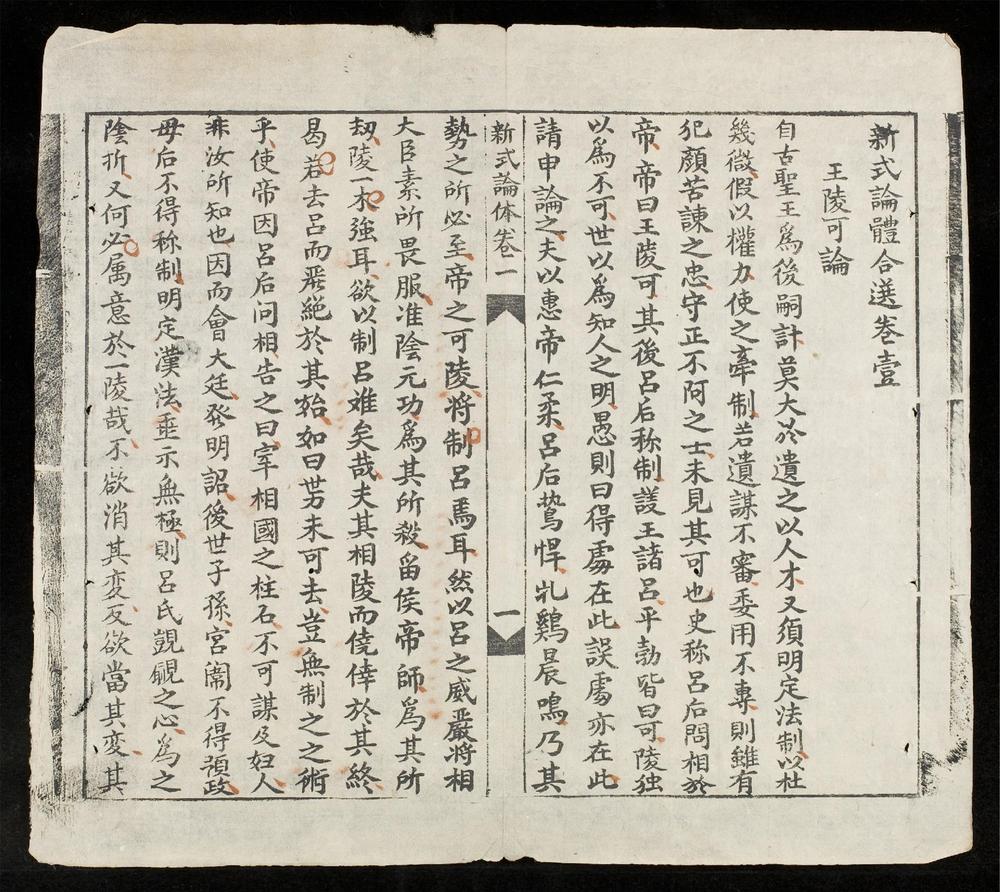 新式論體合選卷壹
王陵可論
自古聖王爲後嗣計莫大於遺之以人才又須明定法制以杜
幾微假以權力使之牽制若遺謀不審委用不專則雖有
犯顏苦諫之忠守正不阿之士未見其可也史称呂后問相於
帝帝曰王陵可其後呂后称制議王諸呂平勃皆曰可陵独
以爲不可世以爲知人之明愚則曰得處在此誤處亦在此
請申論之夫以惠帝仁柔呂后鷙悍牝鷄晨鳴乃其
新式論体卷一
一
勢之所必至帝之可陵將制呂焉耳然以呂之威嚴將相
大臣素所畏服淮陰元功爲其所殺留侯帝師爲其所
刼陵一木強耳欲以制呂难矣哉夫其相陵而僥倖於其終
曷若去呂而𠅤絶於其始如曰势未可去豈無制之之術
乎使帝因呂后问相告之曰宰相國之柱石不可謀及妇人
非汝所知也因而會大廷发明詔後世子孫宮闈不得預政
毋后不得称制明定漢法垂示無極則呂氏覬覦之心爲之
陰折又何必属意於一陵哉不欲消其变反欲當其変其